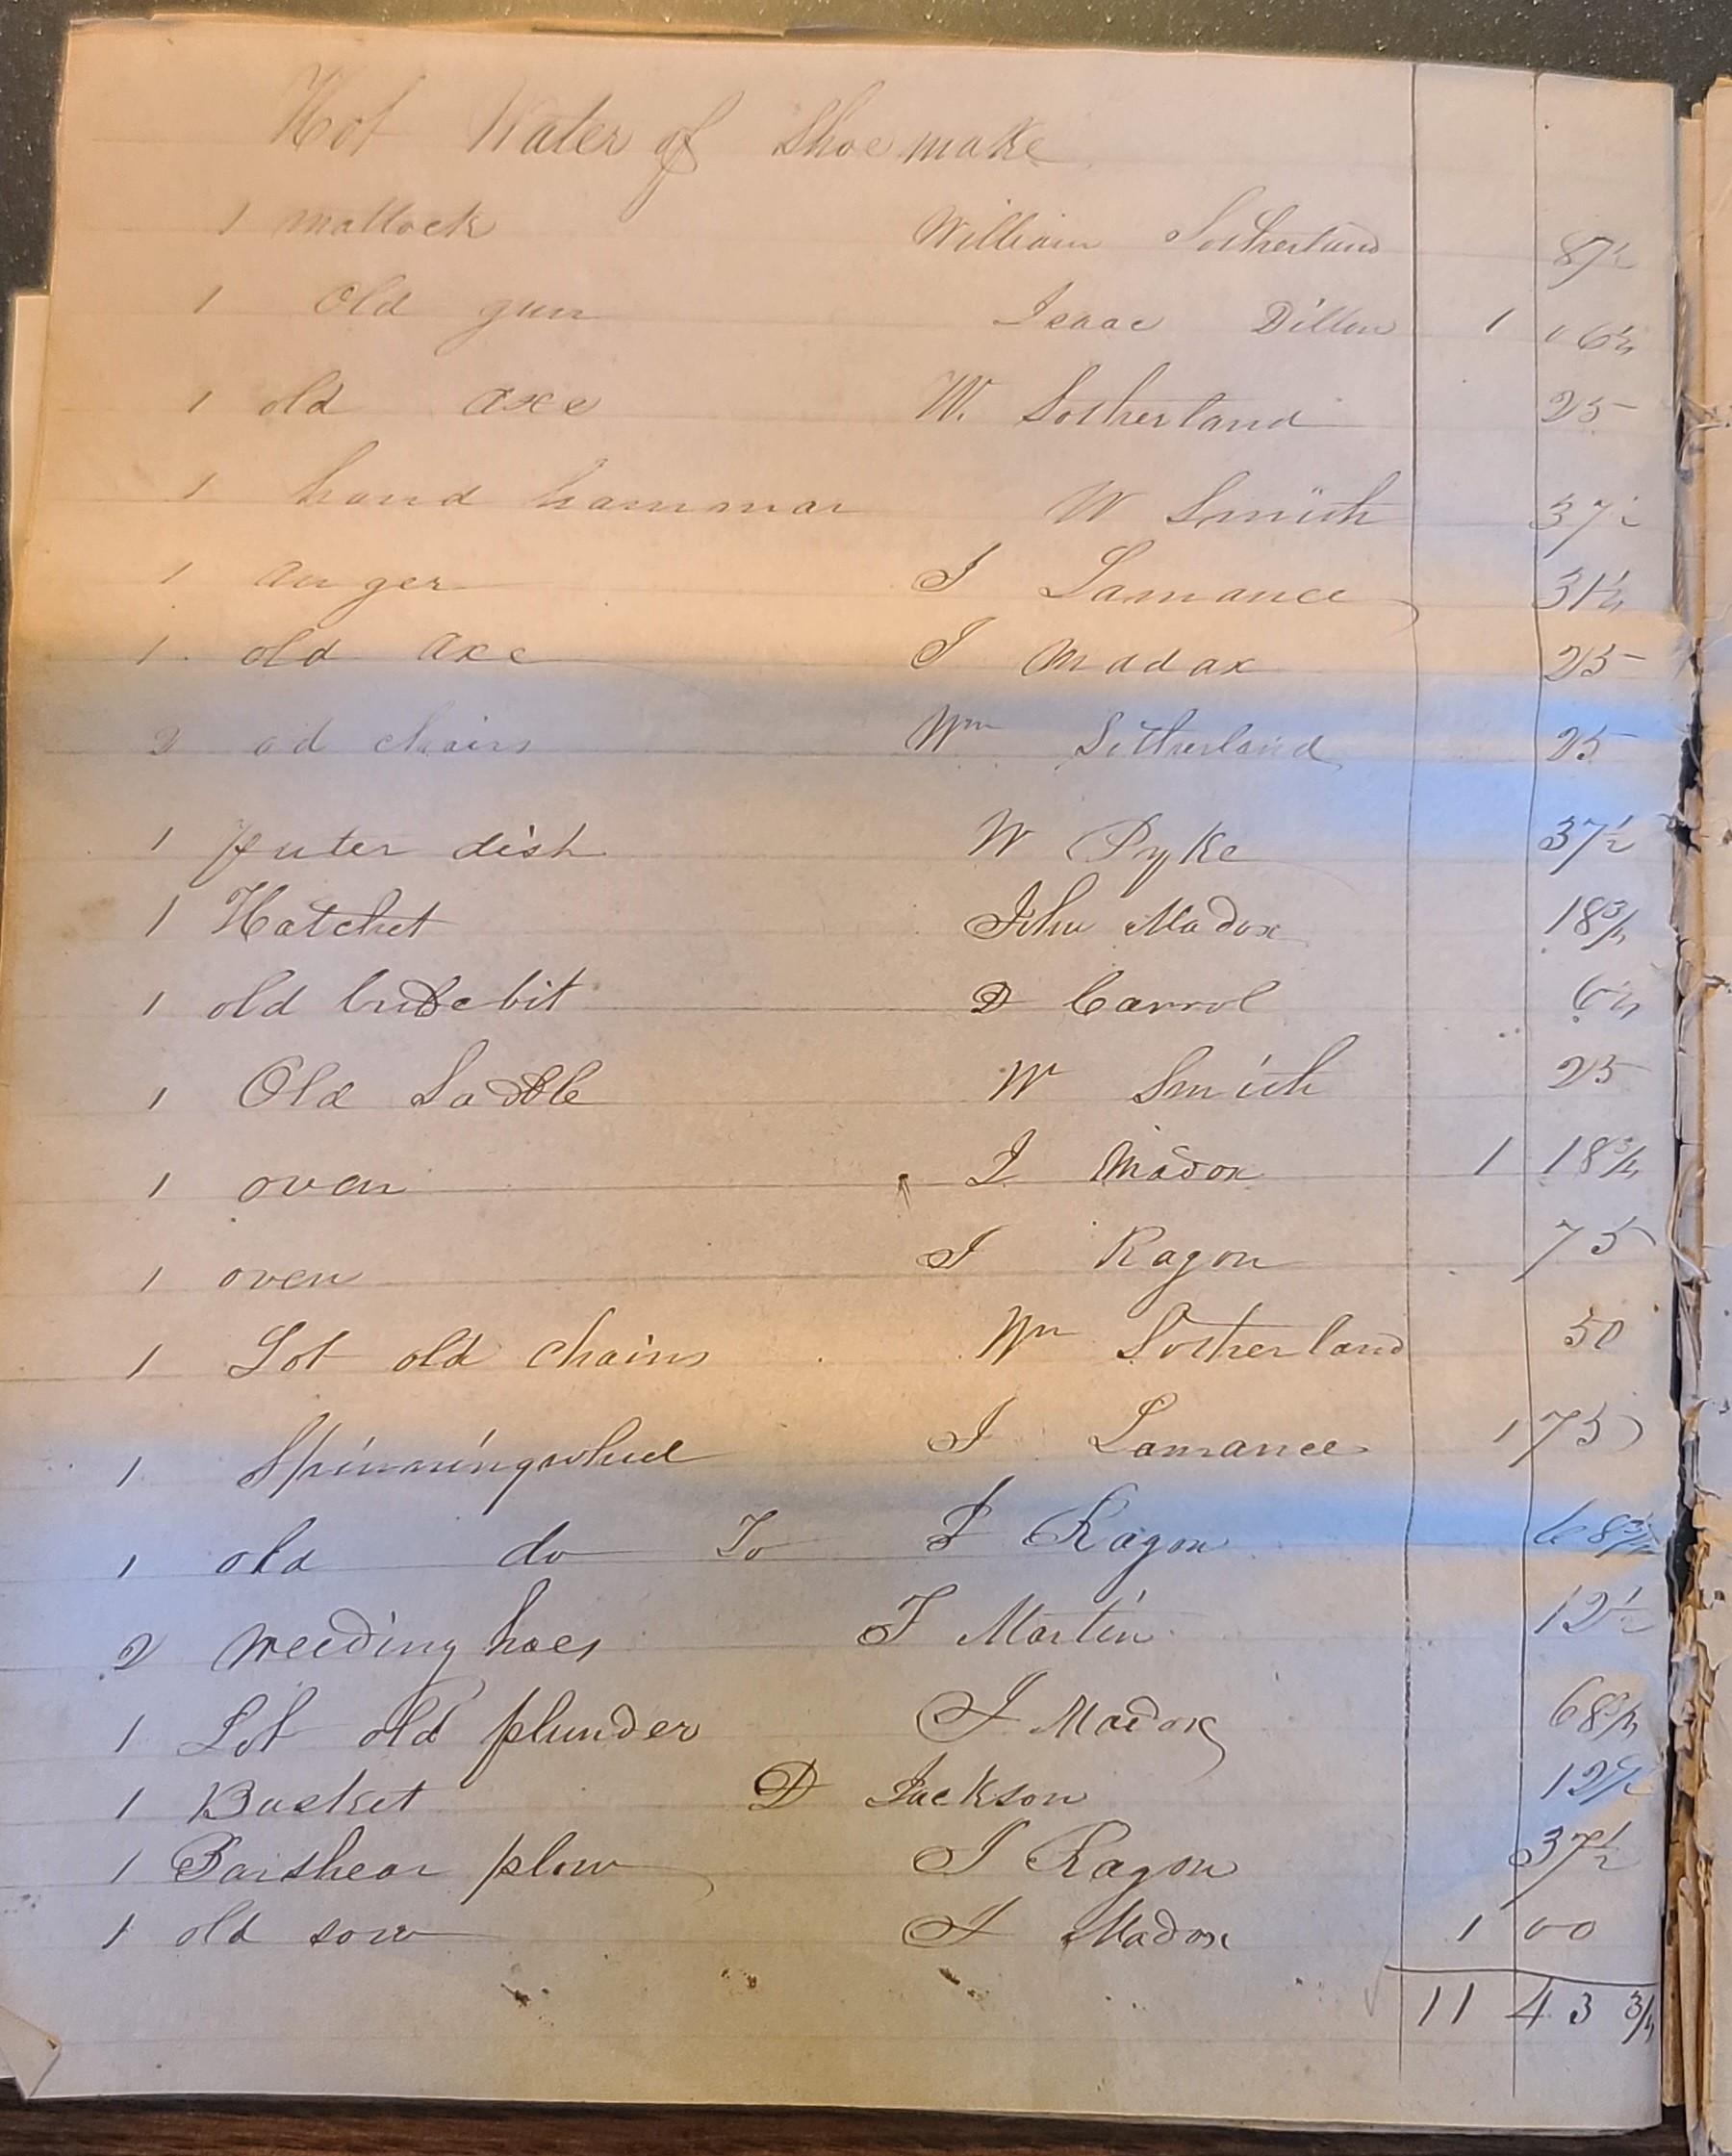 Hot Water of Shoe make
1 mattock William Sotherland 87½
1 Old gun Isaac Dillon 1 06¼
1 old axe W. Sotherland 25
1 hand hammar W Smith 37½
1 auger I Lamance 31¼
1 old axe I Madax 25
2 od chairs Wm Sotherland 25
1 puter dish W Pyke 37½
1 Hatchet John Madox 18¾
1 old bridebit D Carrol 6¼
1 Old Saddle W Smith 25
1 oven I Madox 1 18¾
1 oven I Ragon 75
1 Lot old chains Wm Sotherland 50
1 Spinningwheel I Lamance 1 75
1 old do To I Ragon 68¾
2 weeding hoes T Martin 12½
1 Lot old plunder I Madox 68¾
1 Basket D Jackson 12½
1 Barshear plow I Ragon 37½
1 old sow I Madox 1 00
11 43 ¾